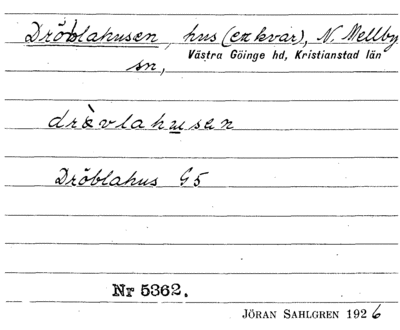 Dröblahusen, hus (ej kvar), N. Mellby
Västra Göinge hd, Kristianstad län
sn,
drævlahusen
Dröblahus G5
Nr 5362.
JÖRAN SAHLGREN 1926